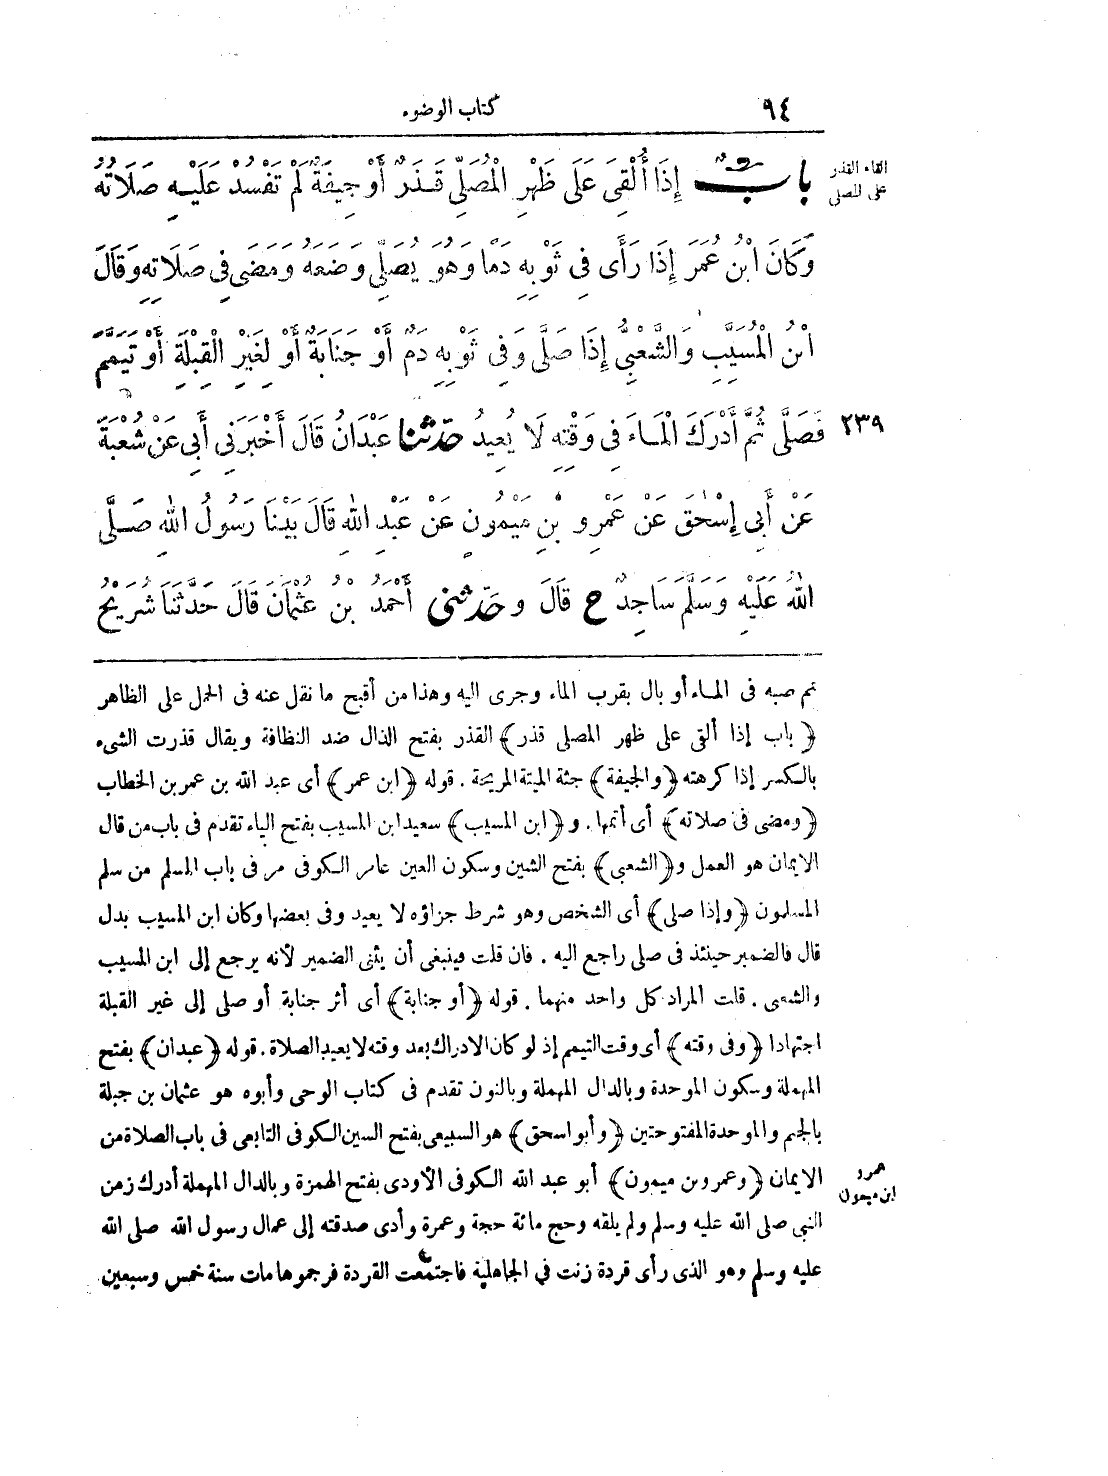 ٩٤
كتاب الوضوء
القاء القذر
على المصلى
بابٌ إِذَا أُلْقِىَ عَلَى ظَهْرِ الْمُصَلِّى قَذَرٌ أَوْ جِيفَةٌ لَمْ تَفْسُدْ عَلَيْهِ صَلَاتُهُ
وَكَانَ ابْنُ عُمَرَ إِذَا رَأَى فِى ثَوْبِهِ دَمًا وَهُوَ يُصَلِّى وَضَعَهُ وَمَضَى فِى صَلَاتِهِ وَقَالَ
ابْنُ الْمُسَيَّبِ وَالشَّعْبِىُّ إِذَا صَلَّى وَفِى ثَوْبِهِ دَمٌ أَوْ جَنَابَةٌ أَوْ لِغَيْرِ الْقِبْلَةِ أَوْ تَيَمَّمَ
٢٣٩ فَصَلَّى ثُمَّ أَدْرَكَ الْمَاءَ فِى وَقْتِهِ لَا يُعِيدُ حدّثنا عَبْدَانُ قَالَ أَخْبَرَنِى أَبِى عَنْ شُعْبَةَ
عَنْ أَبِى إِسْحٰقَ عَنْ عَمْرِو بْنِ مَيْمُونٍ عَنْ عَبْدِ اللهِ قَالَ بَيْنَا رَسُولُ اللهِ صَلَّى
اللهُ عَلَيْهِ وَسَلَّمَ سَاجِدٌ ح قَالَ و حَدّثنى أَحْمَدُ بْنُ عُثْمَانَ قَالَ حَدَّثَنَا شُرَيْحُ
ثم صبه فى الماء أو بال بقرب الماء وجرى اليه وهذا من أقبح ما نقل عنه فى الحمل على الظاهر
﴿باب إذا ألقى على ظهر المصلى قذر﴾ القذر بفتح الذال ضد النظافة ويقال قذرت الشىء
بالكسر إذا كرهته ﴿والجيفة﴾ جثة الميتة المريحة. قوله ﴿ابن عمر﴾ أى عبد الله بن عمر بن الخطاب
﴿ومضى فى صلاته﴾ أى أتمها. و﴿ابن المسيب﴾ سعيد ابن المسيب بفتح الياء تقدم فى باب من قال
الايمان هو العمل و﴿الشعبي﴾ بفتح الشين وسكون العين عامر الكوفى مر فى باب المسلم من سلم
المسلمون ﴿وإذا صلى﴾ أى الشخص وهو شرط جزاؤه لا يعيد وفى بعضها وكان ابن المسيب بدل
قال فالضمير حينئذ فى صلى راجع اليه. فان قلت فينبغى أن يثنى الضمير لأنه يرجع إلى ابن المسيب
والشعبى. قلت المراد كل واحد منهما. قوله ﴿أو جنابة﴾ أى أثر جنابة أو صلى إلى غير القبلة
اجتهادا ﴿وفى وقته﴾ أى وقت التيمم إذ لو كان الادراك بعد وقته لا يعيد الصلاة. قوله ﴿عبدان﴾ بفتح
المهملة وسكون الموحدة وبالدال المهملة وبالنون تقدم فى كتاب الوحى وأبوه هو عثمان بن جبلة
بالجيم والموحدة المفتوحتين ﴿وأبو اسحق﴾ هو السبيعى بفتح السين الكوفى التابعى فى باب الصلاة من
الايمان ﴿وعمرو بن ميمون﴾ أبو عبد الله الكوفى الأودى بفتح الهمزة وبالدال المهملة أدرك زمن
عمرو
ابن ميمون
النبى صلى الله عليه وسلم ولم يلقه وحج مائة حجة وعمرة وأدى صدقته إلى عمال رسول الله صلى الله
عليه وسلم وهو الذى رأى قردة زنت في الجاهلية فاجتمعت القردة فرجموها مات سنة خمس وسبعين